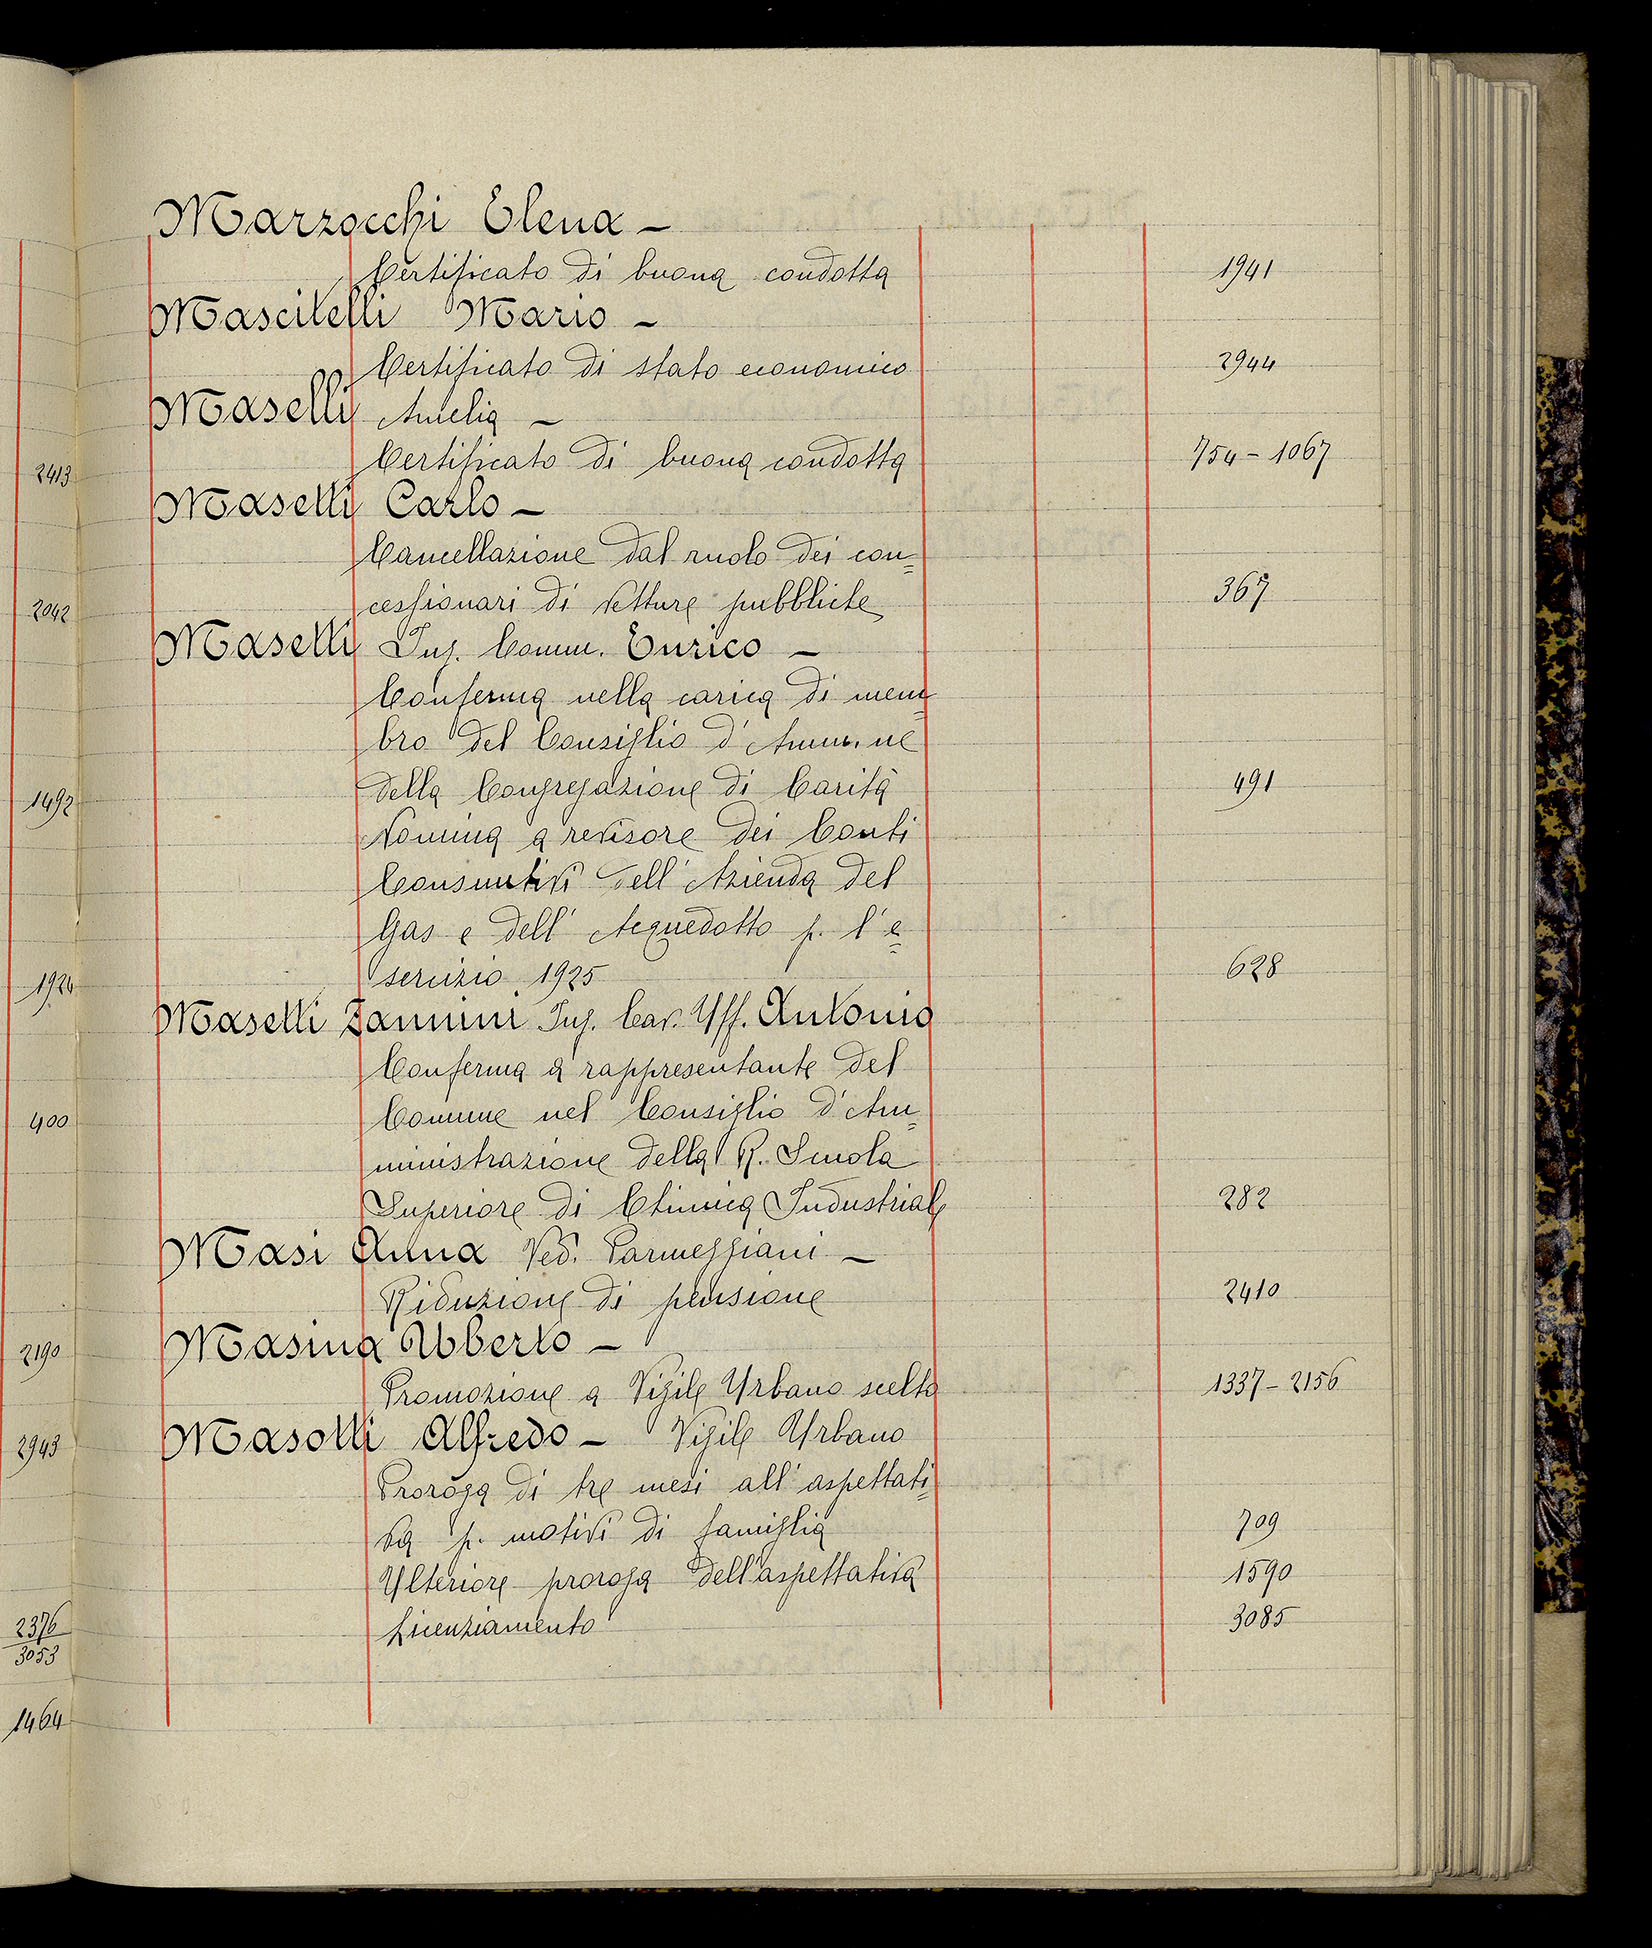 2413
2042
1492
1926
400
2190
2943
2376
3053
1464
Marzocchi Elena –
Certificato di buona condotta 1941
Mascitelli Mario –
Certificato di stato economico 2944
Maselli Amelia –
Certificato di buona condotta 754 – 1067
Masetti Carlo –
Cancellazione dal ruolo dei con=
cessionari di vetture pubbliche 367
Masetti Ing. Comm. Enrico –
Conferma nella carica di mem=
bro del Consiglio d'Amm.ne
della Congregazione di Carità 491
Nomina a revisore dei Conti
Consuntivi dell'Azienda del
Gas e dell'Acquedotto p. l'e=
sercizio 1925 628
Masetti Zannini Ing. Cav. Uff. Antonio
Conferma a rappresentante del
Comune nel Consiglio d'Am=
ministrazione della R. Scuola
Superiore di Chimica Industriale 282
Masi Anna Ved. Parmeggiani –
Riduzione di pensione 2410
Masina Uberto –
Promozione a Vigile Urbano scelto 1337 – 2156
Masotti Alfredo – Vigile Urbano
Proroga di tre mesi all'aspettati=
va p. motivi di famiglia 709
Ulteriore proroga dell'aspettativa 1590
Licenziamento 3085